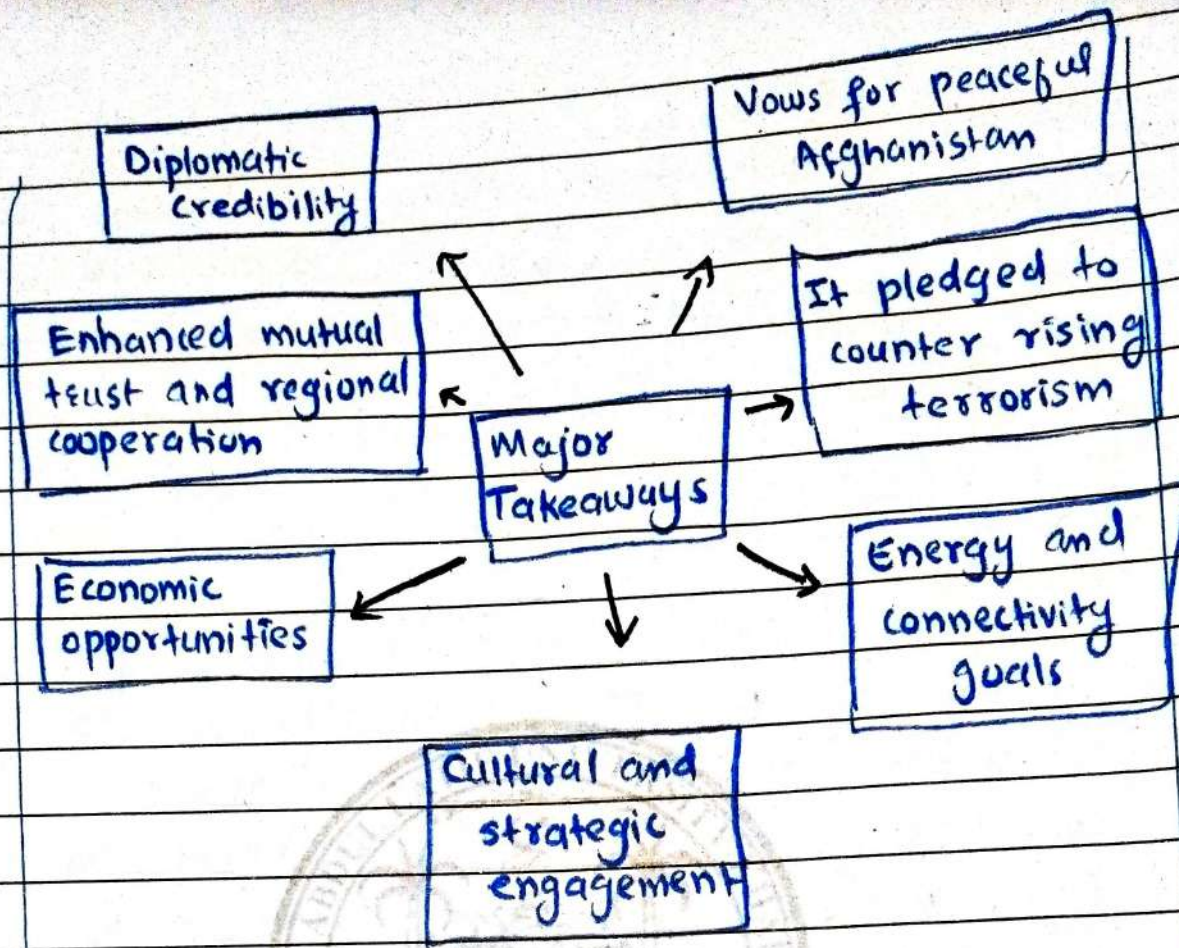 Diplomatic
credibility
Vows for peaceful
Afghanistan
Enhanced mutual
trust and regional
cooperation
It pledged to
counter rising
terrorism
Major
Takeaways
Economic
opportunities
Energy and
connectivity
goals
Cultural and
strategic
engagement